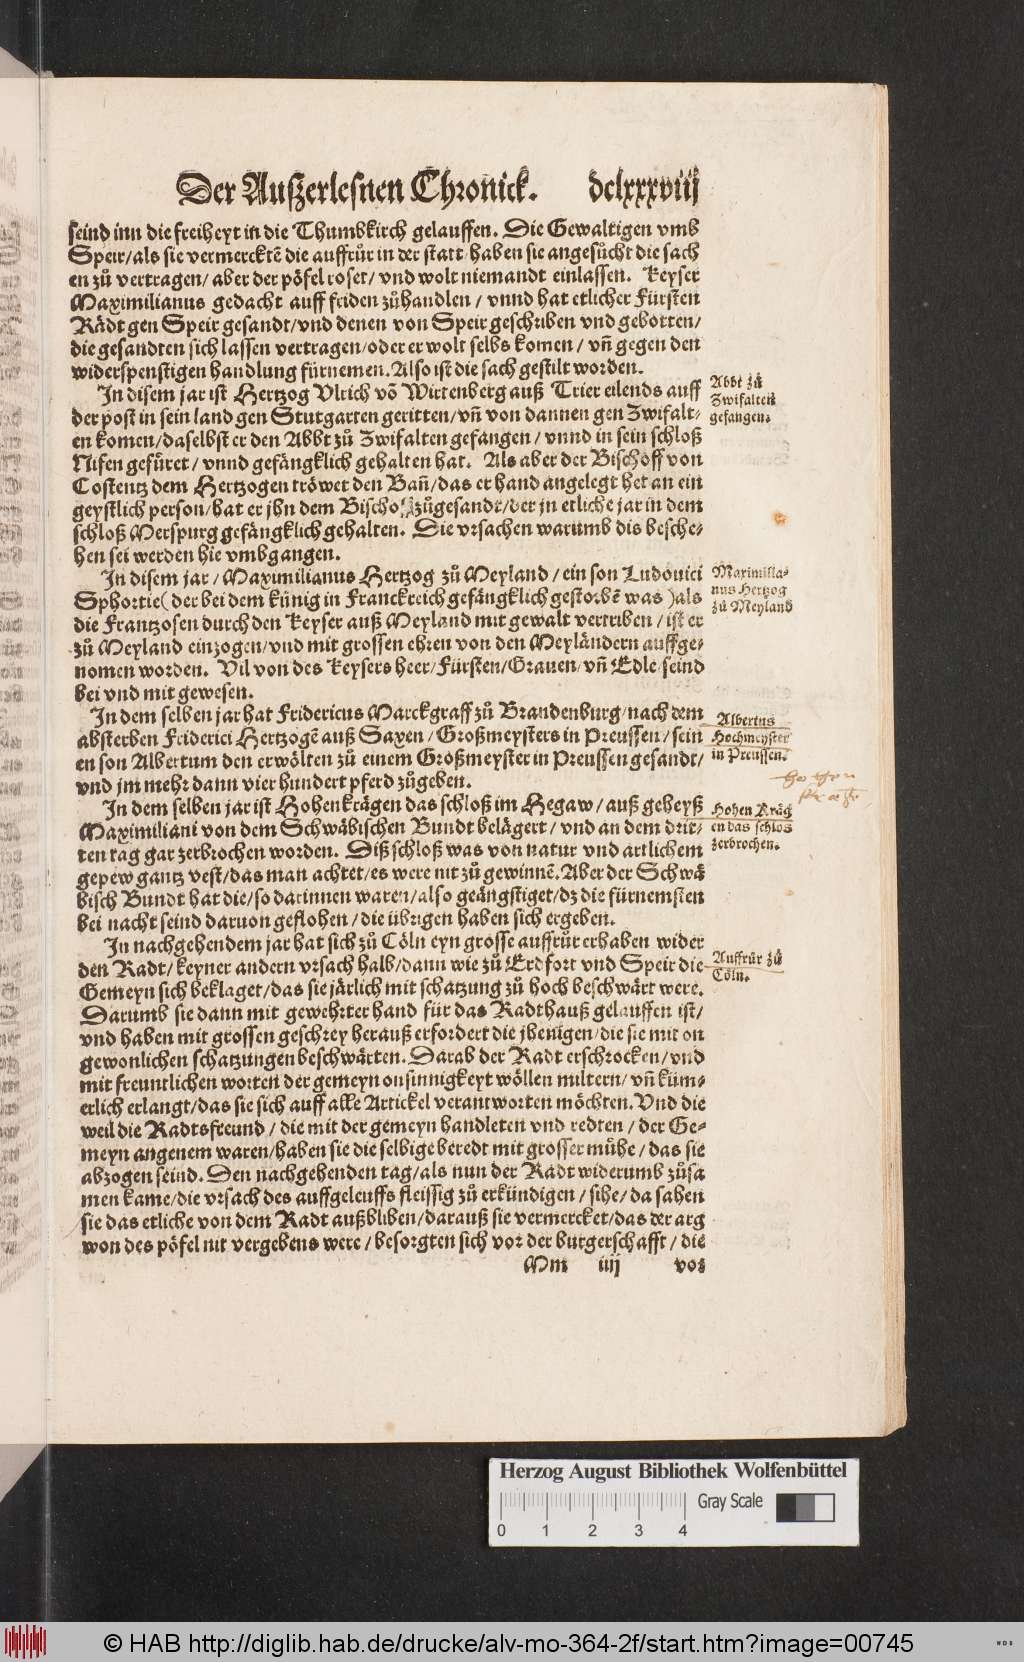 Der Außzerlesnen Chronick. dclxxxviij
seind inn die freiheyt in die Thumbkirch gelauffen. Die Gewaltigen vmb
Speir/als sie vermercktē die auffrůr in der statt/haben sie angesůcht die sach
en zů vertragen/aber der pöfel roset/vnd wolt niemandt einlassen. Keyser
Maximilianus gedacht auff friden zůhandlen/vnnd hat etlicher Fürsten
Rädt gen Speir gesandt/vnd denen von Speir geschriben vnd gebotten/
die gesandten sich lassen vertragen/oder er wolt selbs komen/vñ gegen den
widerspenstigen handlung fürnemen. Also ist die sach gestilt worden.
In disem jar ist Hertzog Vlrich vō Wirtenberg auß Trier eilends auff
der post in sein land gen Stutgarten geritten/vñ von dannen gen Zwifalt-
en komen/daselbst er den Abbt zů Zwifalten gefangen/vnnd in sein schloß
Nifen gefüret/vnnd gefängklich gehalten hat. Als aber der Bischoff von
Costentz dem Hertzogen tröwet den Bañ/das er hand angelegt het an ein
geystlich person/hat er jhn dem Bischoff zůgesandt/der jn etliche jar in dem
schloß Merspurg gefängklich gehalten. Die vrsachen warumb dis besche-
hen sei werden hie vmbgangen.
In disem jar/Maximilianus Hertzog zů Meyland/ein son Ludouici
Sphortie(der bei dem künig in Franckreich gefängklich gestorbē was)als
die Frantzosen durch den Keyser auß Meyland mit gewalt vertriben/ist er
zů Meyland einzogen/vnd mit grossen ehren von den Meyländern auffge-
nomen worden. Vil von des Keysers heer/Fürsten/Grauen/vñ Edle seind
bei vnd mit gewesen.
In dem selben jar hat Fridericus Marckgraff zů Brandenburg/nach dem
absterben Friderici Hertzogē auß Saxen/Großmeysters in Preussen/sein
en son Albertum den erwölten zů einem Großmeyster in Preussen gesandt/
vnd jm mehr dann vier hundert pferd zůgeben.
In dem selben jar ist Hohenkrägen das schloß im Hegaw/auß geheyß
Maximiliani von dem Schwäbischen Bundt belägert/vnd an dem drit/
ten tag gar zerbrochen worden. Diß schloß was von natur vnd artlichem
gepew gantz vest/das man achtet/es were nit zů gewinnē. Aber der Schwä
bisch Bundt hat die/so darinnen waren/also geängstiget/dz die fürnemsten
bei nacht seind daruon geflohen/die übrigen haben sich ergeben.
In nachgehendem jar hat sich zů Cöln eyn grosse auffrůr erhaben wider
den Radt/keyner andern vrsach halb/dann wie zů Erdfort vnd Speir die
Gemeyn sich beklaget/das sie järlich mit schatzung zů hoch beschwärt were.
Darumb sie dann mit gewehrter hand für das Radthauß gelauffen ist/
vnd haben mit grossen geschrey herauß erfordert die jhenigen/die sie mit on
gewonlichen schatzungen beschwärten. Darab der Radt erschrocken/vnd
mit freuntlichen worten der gemeyn onsinnigkeyt wöllen miltern/vñ küm-
erlich erlangt/das sie sich auff alle Artickel verantworten möchten. Vnd die
weil die Radtsfreund/die mit der gemeyn handleten vnd redten/der Ge-
meyn angenem waren/haben sie die selbige beredt mit grosser mühe/das sie
abzogen seind. Den nachgehenden tag/als nun der Radt widerumb zůsa
men kame/die vrsach des auffgeleuffs fleissig zů erkündigen/sihe/da sahen
sie das etliche von dem Radt außbliben/darauß sie vermercket/das der arg
won des pöfel nit vergebens were/besorgten sich vor der burgerschafft/die
Mm iiij vor
Abbt zů
Zwifalten
gefangen.
Maximilia-
nus Hertzog
zů Meyland
Albertus
Hochmeyster
in Preussen.
Hohen Kräg
en das schlos
zerbrochen.
Auffrůr zů
Cöln.
Herzog August Bibliothek Wolfenbüttel
Gray Scale
0 1 2 3 4
© HAB http://diglib.hab.de/drucke/alv-mo-364-2f/start.htm?image=00745